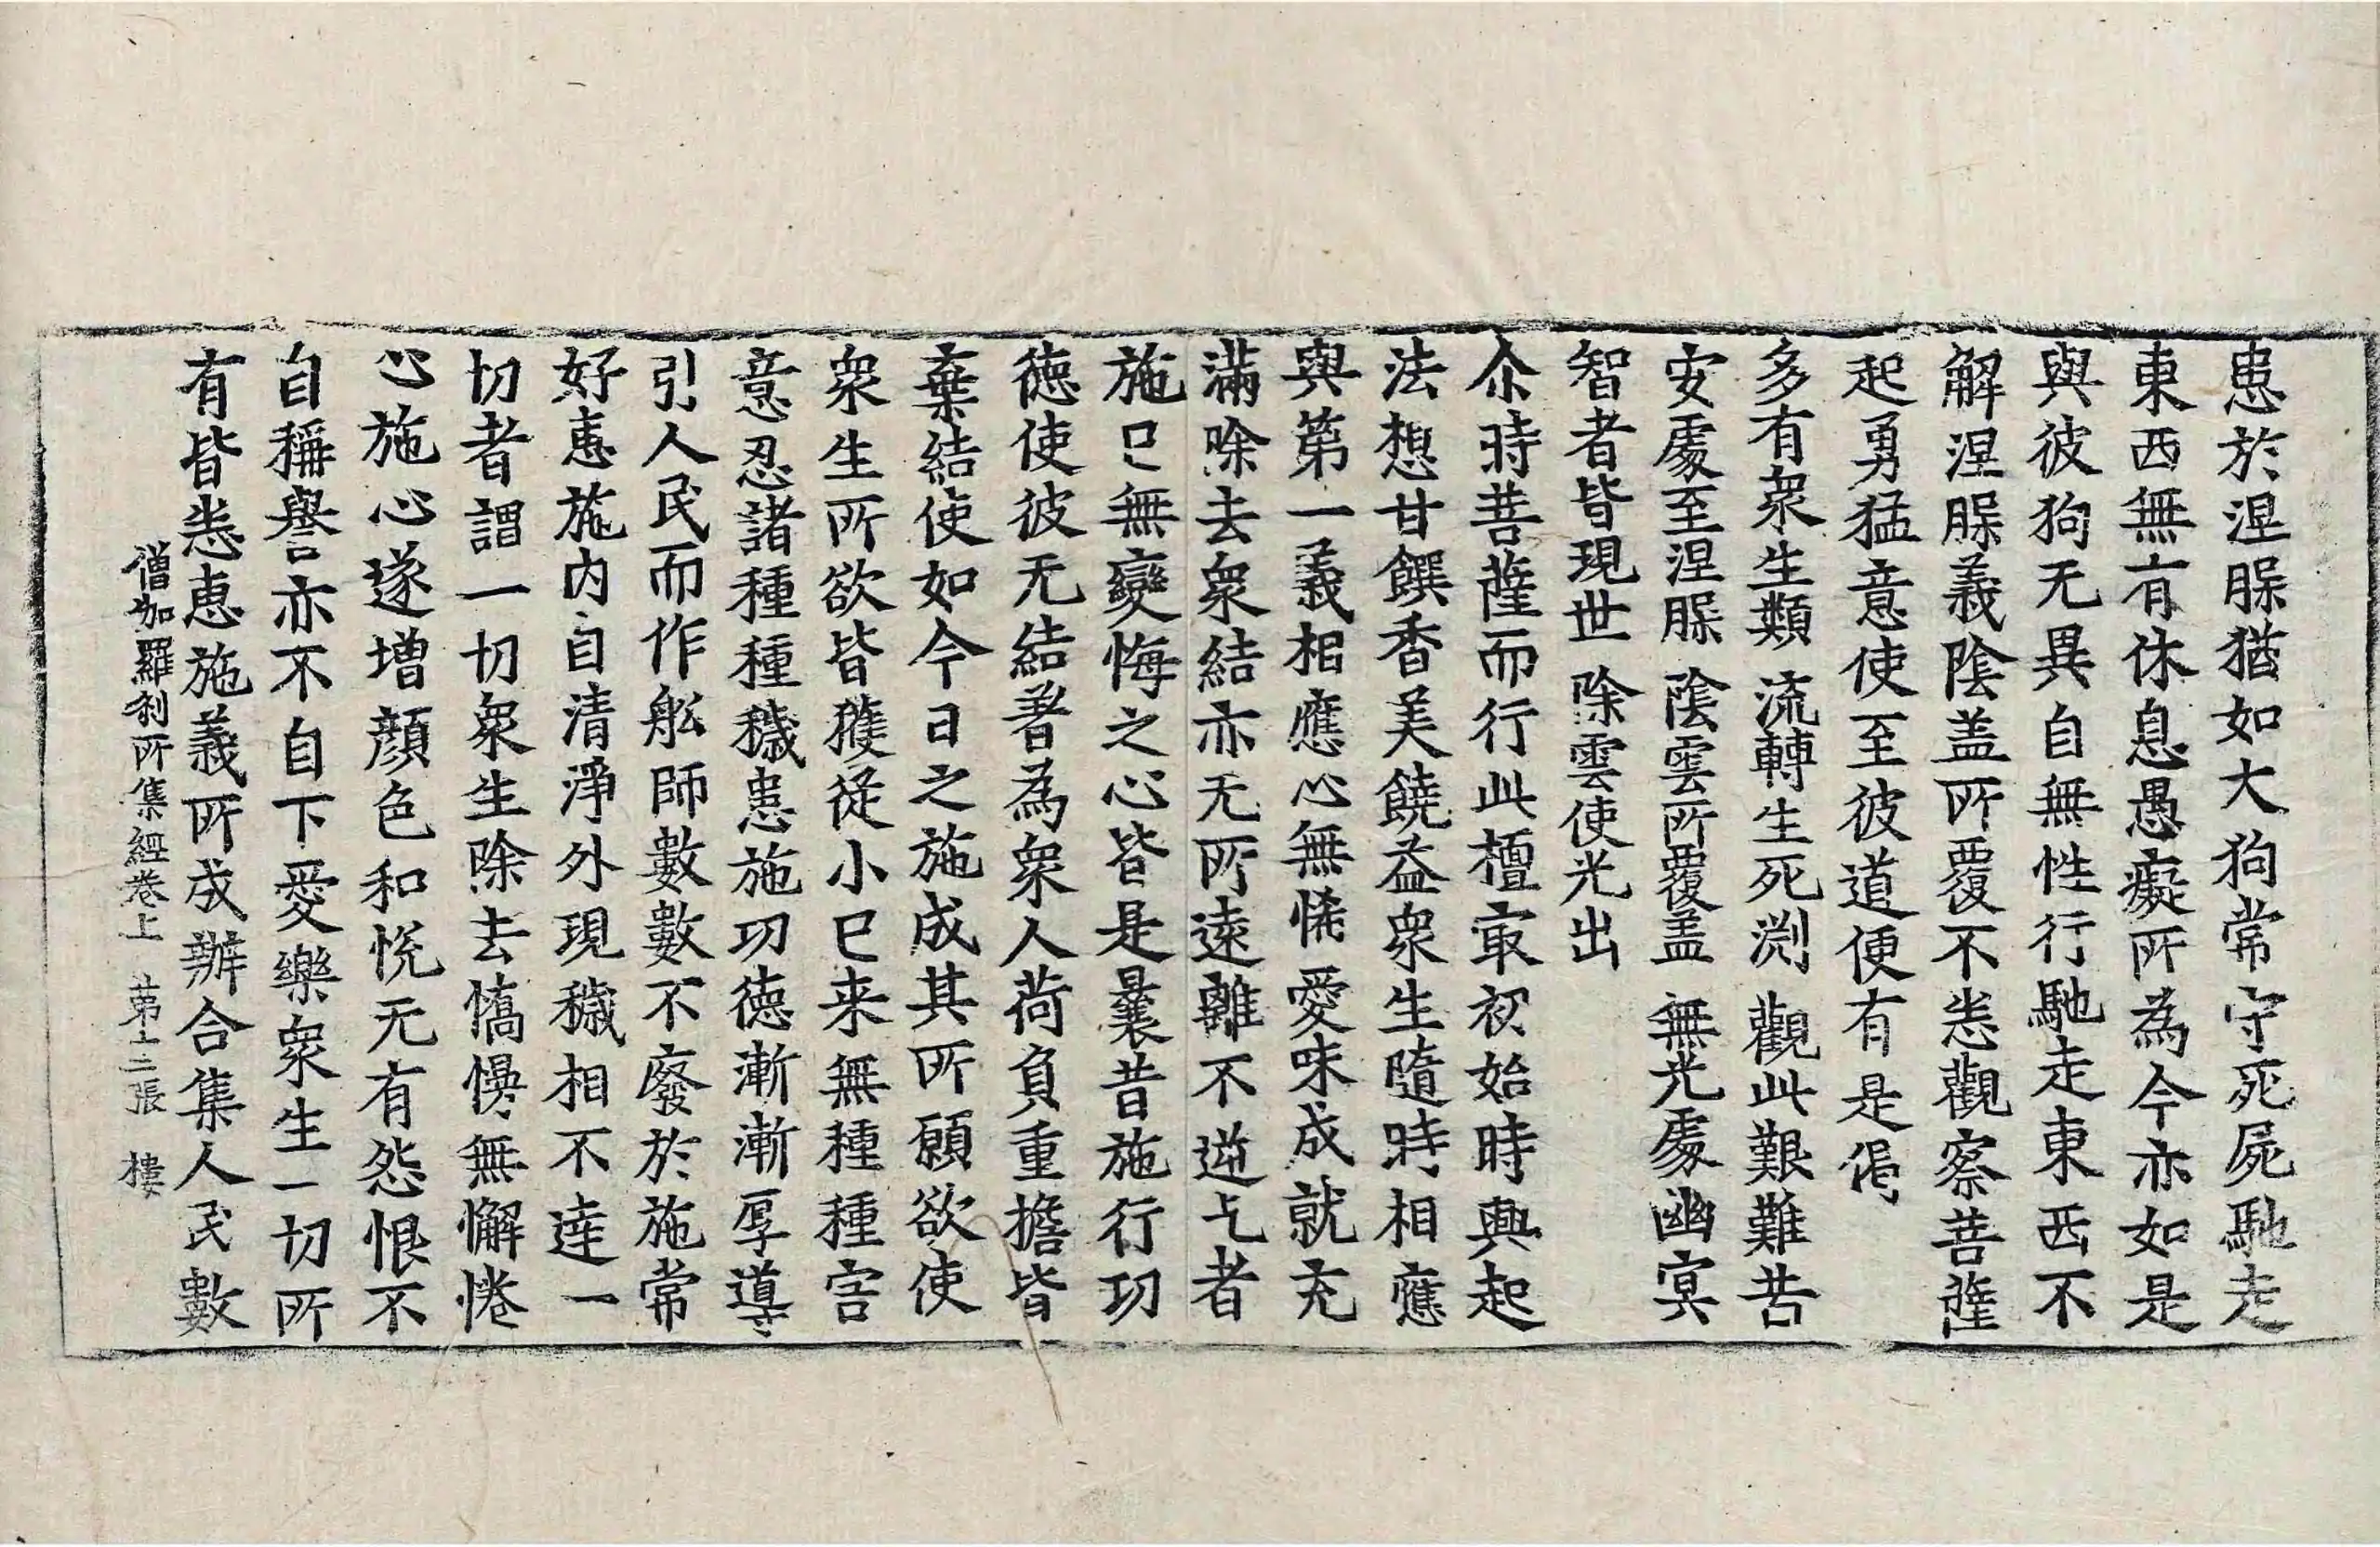 患於涅脲猶如大狗常守死屍馳走
東西無有休息愚癡所為今亦如是
與彼狗无異自無性行馳走東西不
解涅脲義陰盖所覆不悉觀察菩薩
起勇猛意使至彼道便有是偈
多有衆生類 流轉生死渕 觀此艱難苦
安處至涅脲 陰雲所覆盖 無光處幽冥
智者皆現世 除雲使光出
尒時菩薩而行此檀㝡初始時興起
法想甘饌香美饒益衆生隨時相應
與第一義相應心無悕愛味成就充
滿除去衆結亦无所遠離不逆乞者
施已無變悔之心皆是曩昔施行功
德使彼无結著為衆人荷負重擔皆
棄結使如今日之施成其所願欲使
衆生所欲皆獲從小已来無種種害
意忍諸種種穢患施功德漸漸厚導
引人民而作舩師數數不廢於施常
好惠施内自清淨外現穢相不違一
切者謂一切衆生除去憍慢無懈惓
心施心遂增顔色和恱无有怨恨不
自稱譽亦不自下愛樂衆生一切所
有皆悉惠施義所成辦合集人民數
僧加羅刹所集經卷上 第十二張 樓